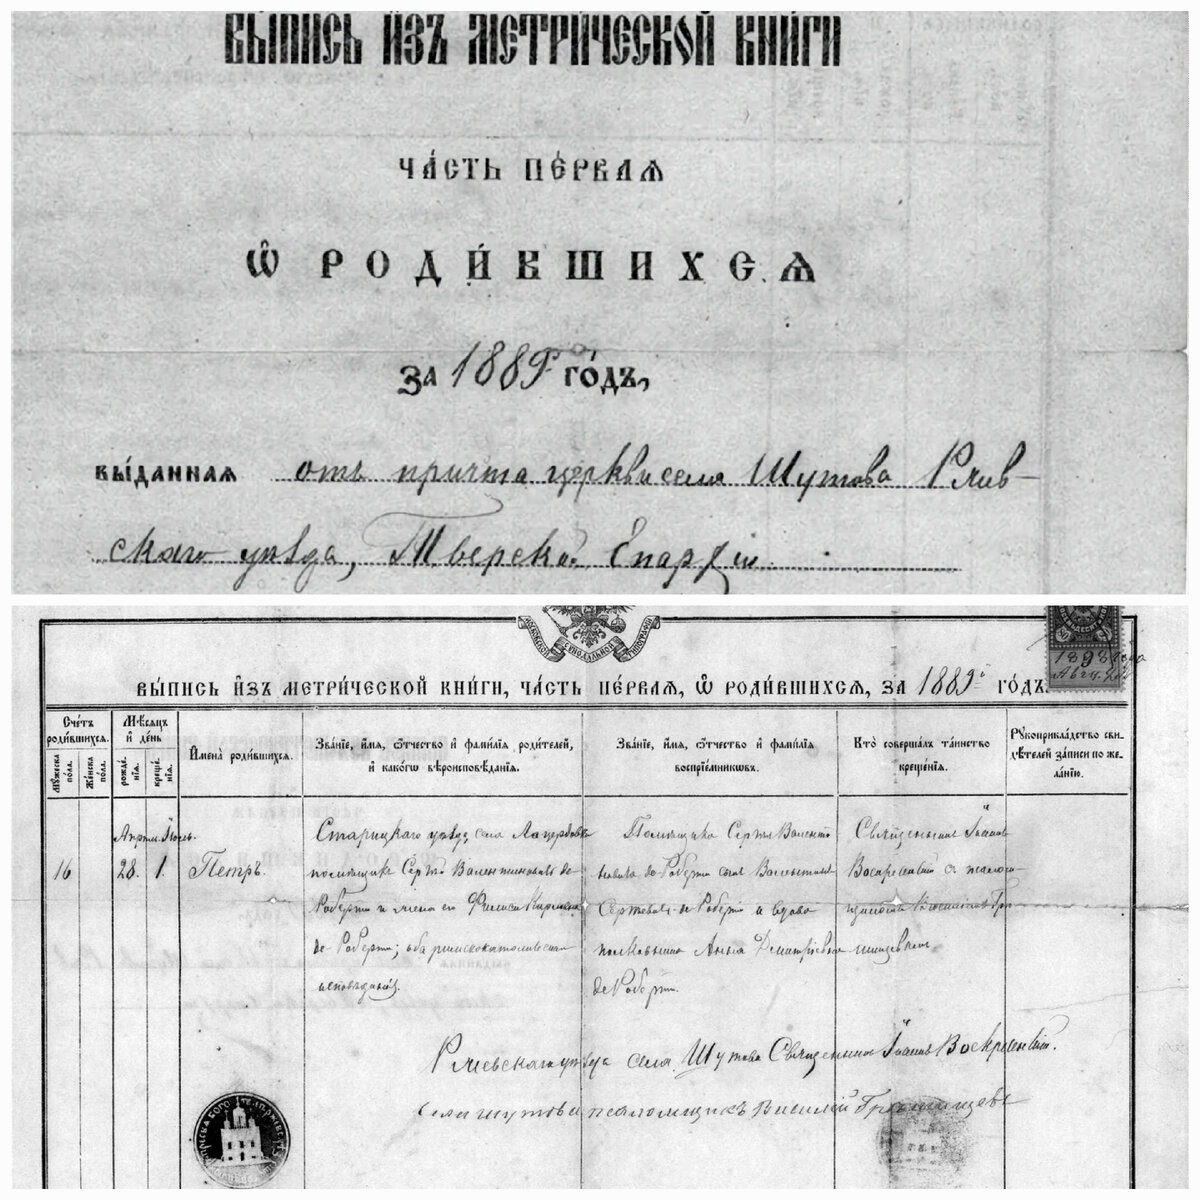 ВЫ́ПИСЬ И҆ЗЪ МЕТРИ́ЧЕСКОЙ КНИ́ГИ
ЧА́СТЬ ПЕ́РВАѦ
Ѽ РОДИ́ВШИХСѦ
ЗА 1889 г. ГО́ДЪ,
ВЫ́ДАННАѦ отъ причта церкви села Шутова Ржев-
скаго уѣзда, Тверской Епархiи.
МОСКОВСКОЙ СѴНОДАЛЬНОЙ ТИПОГРАФIИ
1898 года
Авг.
ВЫ́ПИСЬ И҆ЗЪ МЕТРИ́ЧЕСКОЙ КНИ́ГИ, ЧА́СТЬ ПЕ́РВАѦ, Ѽ РОДИ́ВШИХСѦ, ЗА 1889 й ГО́ДЪ.
Сче́тъ роди́вшихсѧ.
Мꙋ́жеска по́ла.
Же́нска по́ла.
Мѣ́сѧцъ и҆ де́нь
рожде́нiѧ.
креще́нiѧ.
И҆мена̀ роди́вшихсѧ.
Зва́нiе, и҆́мѧ, ѻ҆́тчество и҆ фами́лiѧ роди́телей,
и҆ како́гѡ вѣроисповѣ́данiѧ.
Зва́нiе, и҆́мѧ, ѻ҆́тчество и҆ фами́лiѧ
воспрiе́мникѡвъ.
Кто̀ соверша́лъ та́инство
креще́нiѧ.
Рꙋкоприкла́дство сви-
дѣ́телей за́писи по же-
ла́нiю.
Апрѣл. Iюль.
16 28. 1. Петръ.
Старицкаго уѣзда, села
помѣщикъ Сергѣй Валентиновичъ де-
Роберти и жена его
де-Роберти; оба римскокатолическаго
исповѣданiя.
Помѣщикъ Сергѣй Валенти-
новичъ де-Роберти сынъ Валентинъ
Сергѣевичъ де-Роберти и вдова
полковника Анна Димитрiевна
де-Роберти.
Священникъ Iоаннъ
Воскресенскiй съ псалом-
щикомъ Василiемъ Гри-
шищевымъ
Ржевскаго уѣзда села Шутова Священникъ Iоаннъ Воскресенскiй.
Села Шутова псаломщикъ Василiй